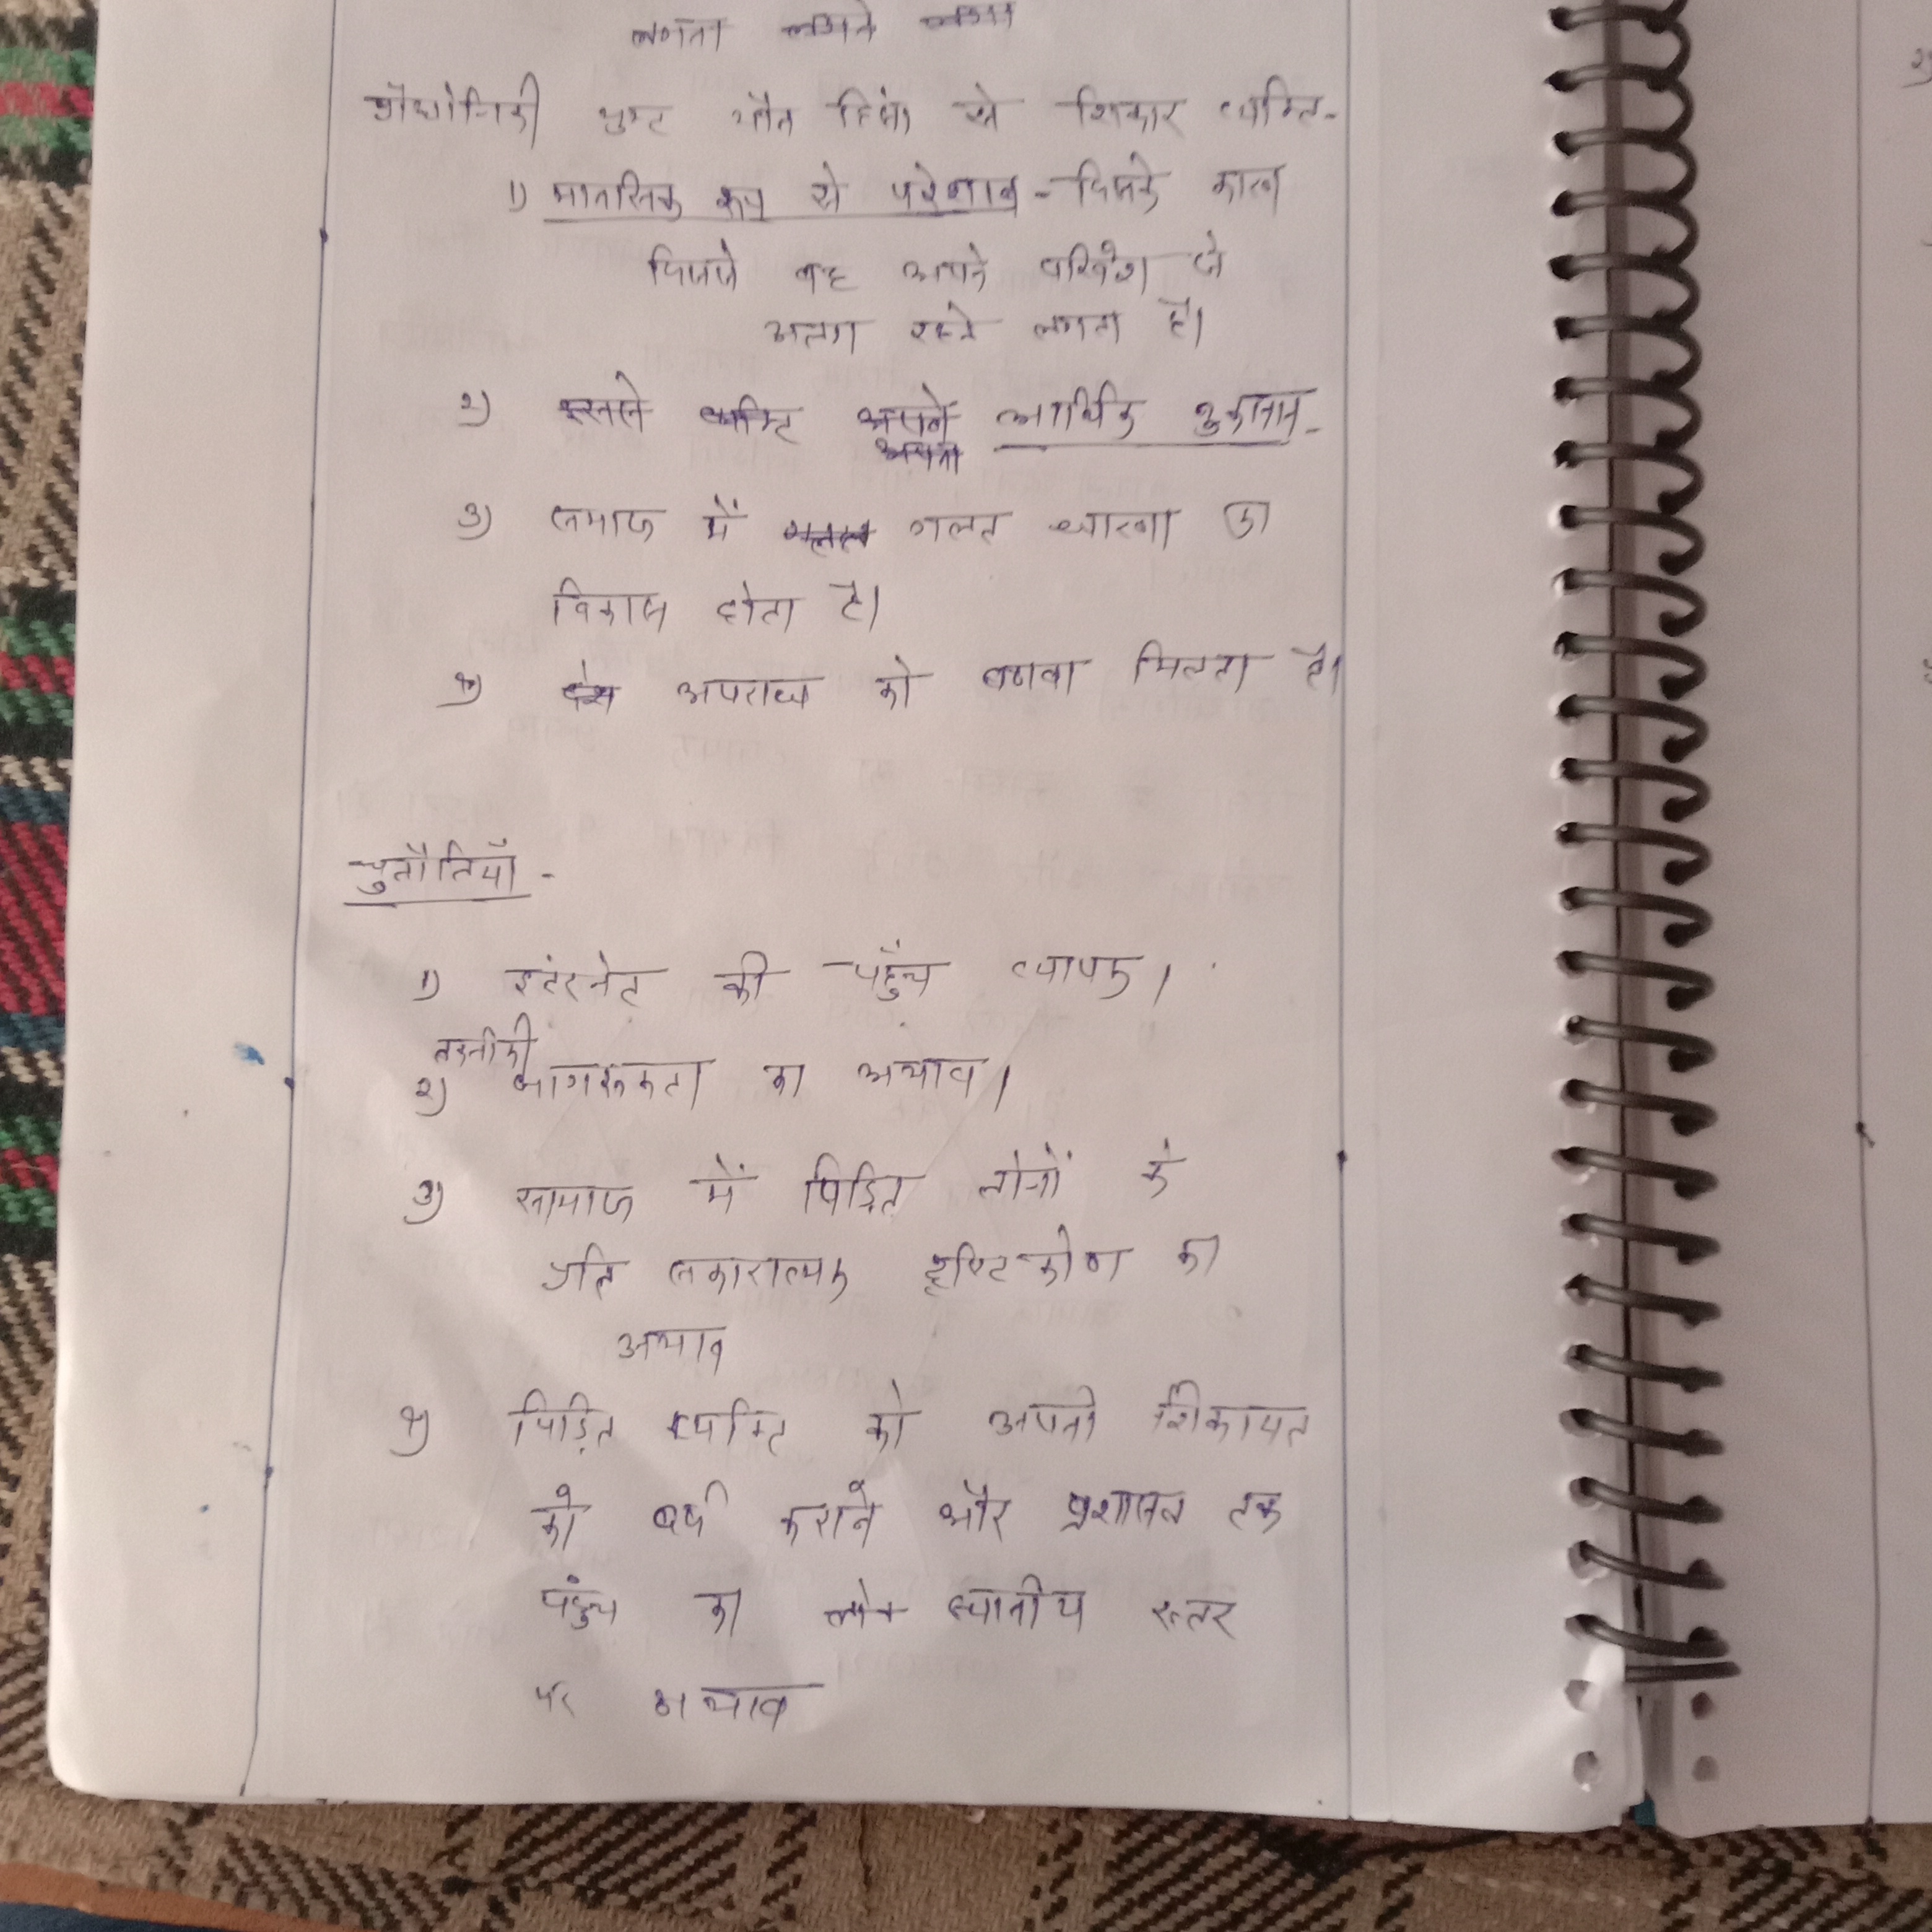 लगता
प्रौद्योगिकी पुष्ट यौन हिंसा से शिकार व्यक्ति-
1) मानसिक रूप से परेशान - जिसके कारण
जिससे वह अपने परिवेश से
अलग रहने लगता है।
2) इससे व्यक्ति अपने आर्थिक नुकसान-
अपना
3) समाज में गलत धारणा का
विकास होता है।
4) अपराध को बढावा मिलता है।
चुनौतियाँ -
1) इंटरनेट की पहुँच व्यापक।
तकनीकी
2) जागरूकता का अभाव।
3) समाज में पिड़ित लोगों के
प्रति सकारात्मक दृष्टिकोण का
अभाव
4) पिड़ित व्यक्ति को अपनी शिकायत
को दर्ज कराने और प्रशासन तक
पहुंच का स्थानीय स्तर
पर अभाव